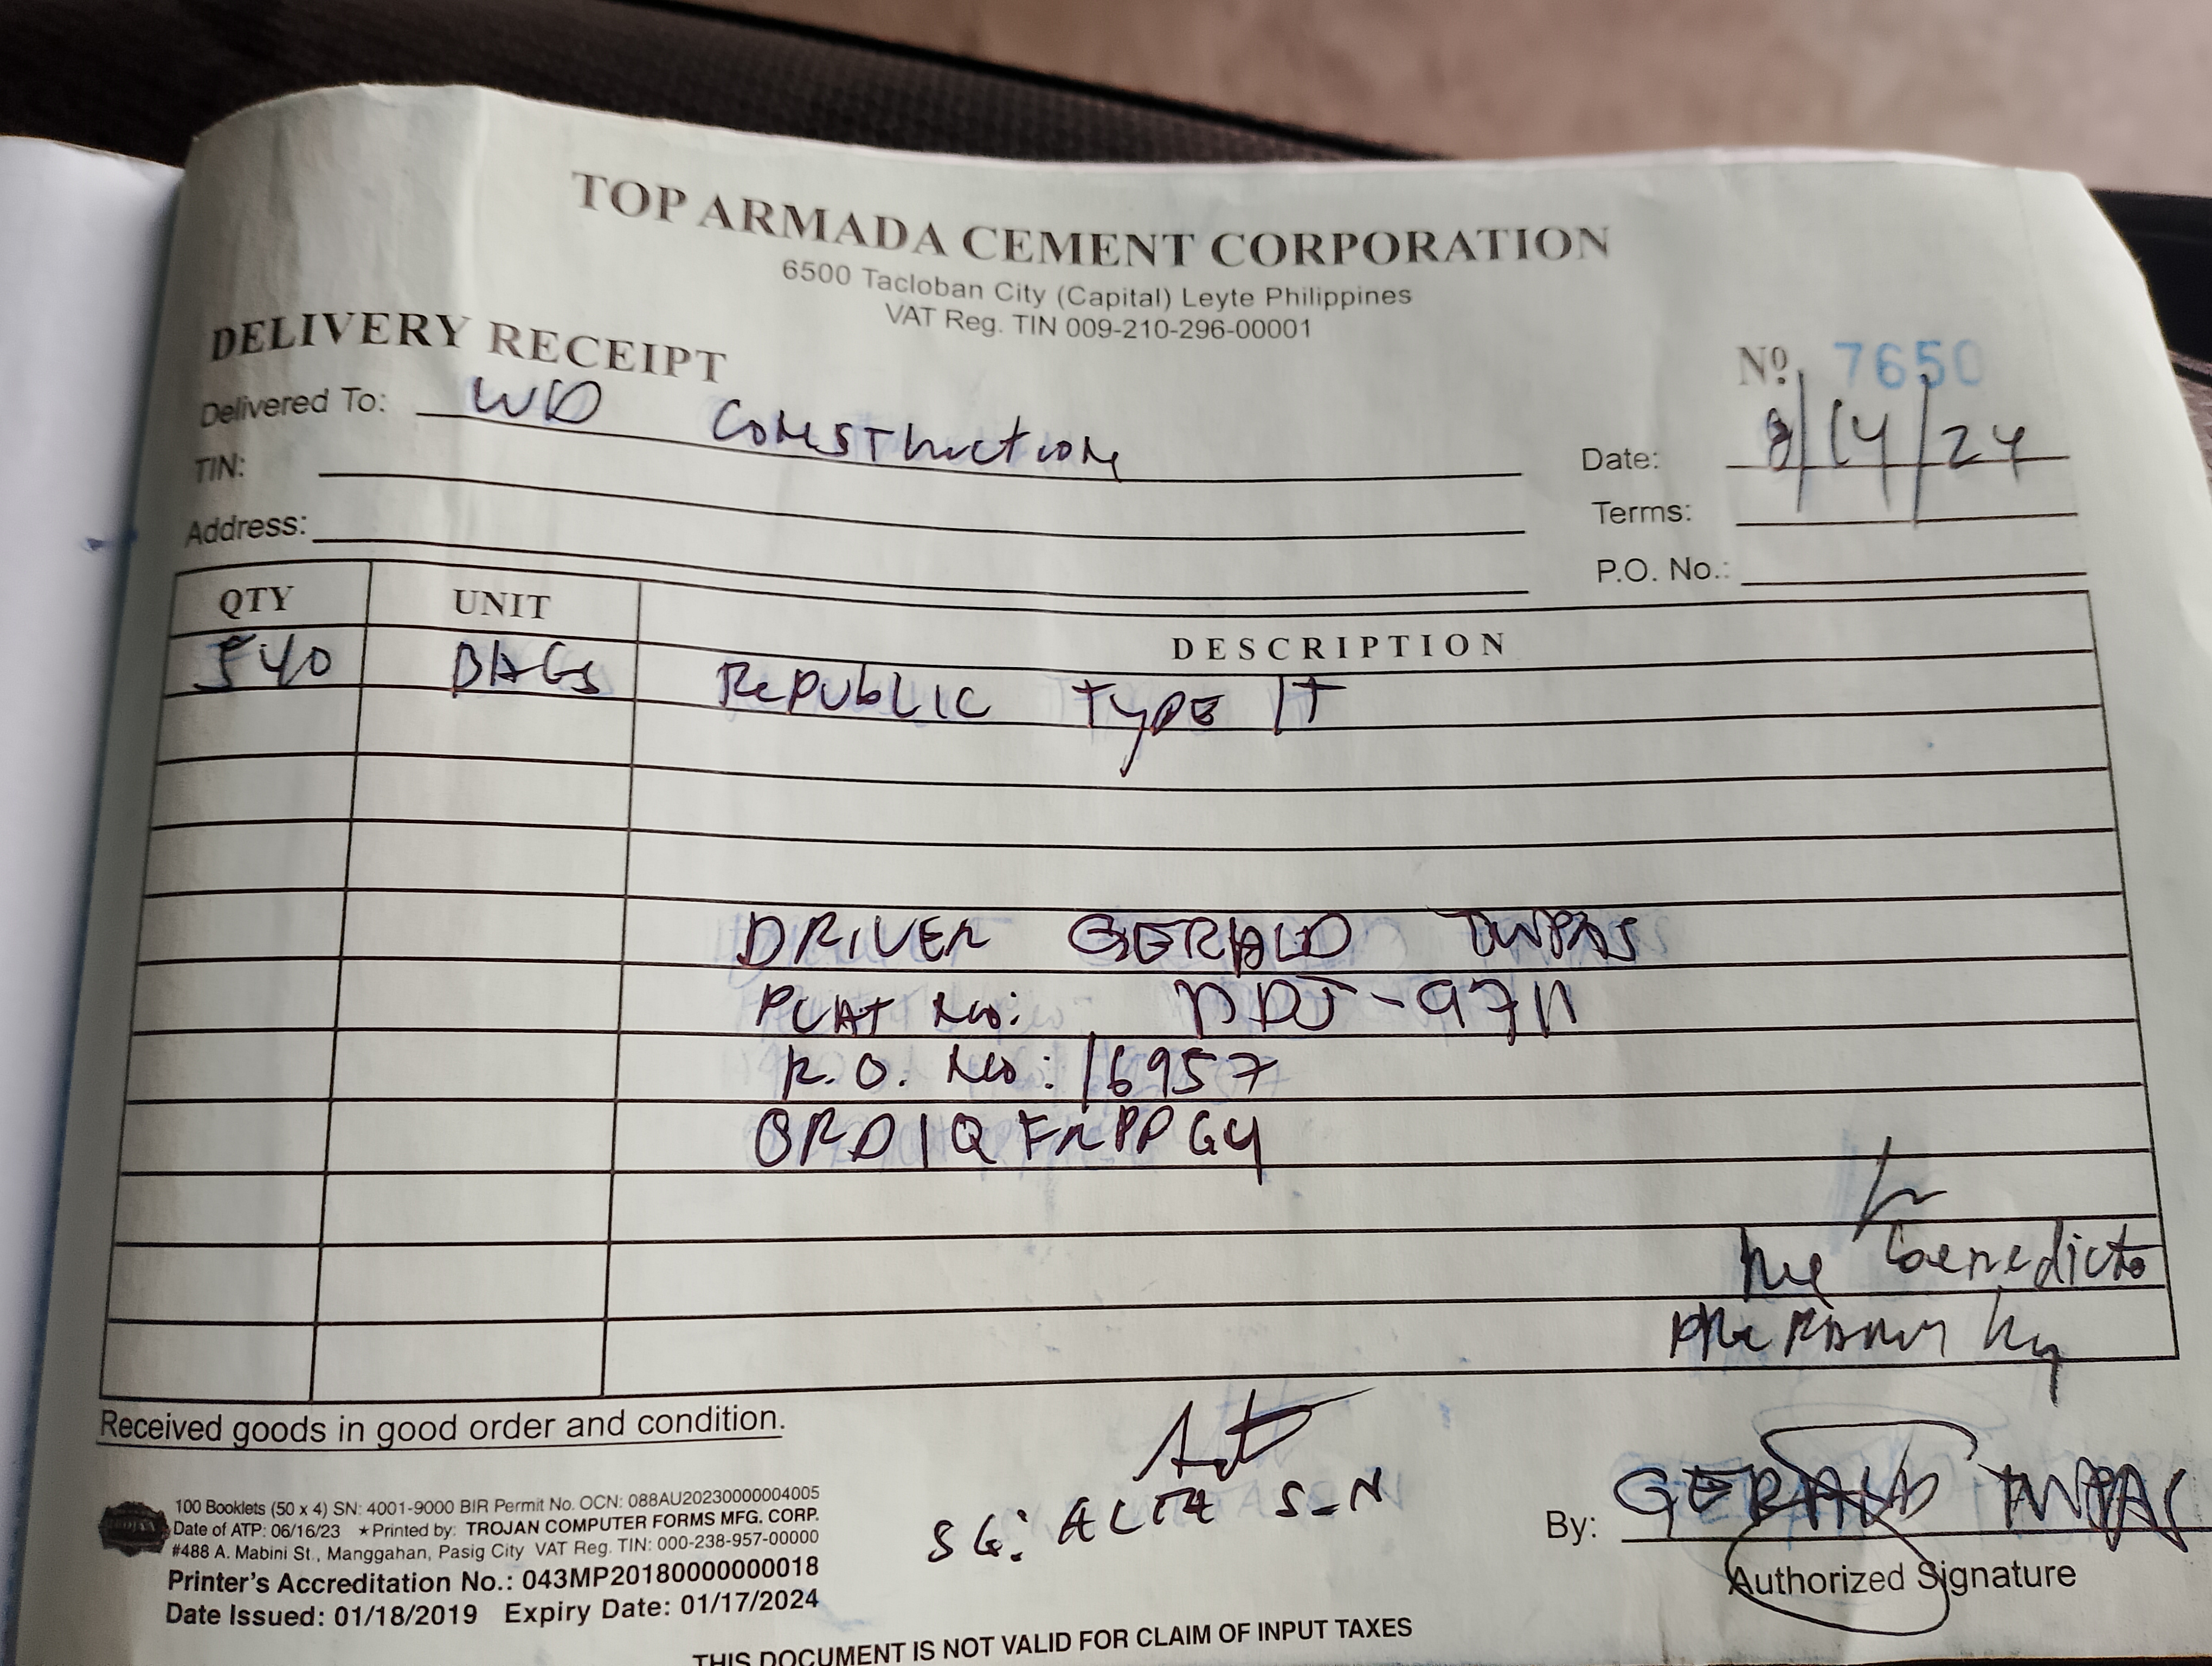 TOP ARMADA CEMENT CORPORATION
6500 Tacloban City (Capital) Leyte Philippines
VAT Reg. TIN 009-210-296-00001
DELIVERY RECEIPT
Nº 7650
Delivered To: WD Construction
Date: 8/14/24
TIN:
Terms:
Address:
P.O. No.:
QTY UNIT DESCRIPTION
540 BAGS Republic Type 1T
DRIVER GERALD
PLAT No: NDJ-9711
R.O. No: 16957
ORD1QFRPPG4
benedicto
by
Received goods in good order and condition.
SG: S-N
By: GERALD
Authorized Signature
100 Booklets (50 x 4) SN: 4001-9000 BIR Permit No. OCN: 088AU20230000004005
Date of ATP: 06/16/23 ★Printed by: TROJAN COMPUTER FORMS MFG. CORP.
#488 A. Mabini St., Manggahan, Pasig City VAT Reg. TIN: 000-238-957-00000
Printer's Accreditation No.: 043MP20180000000018
Date Issued: 01/18/2019 Expiry Date: 01/17/2024
THIS DOCUMENT IS NOT VALID FOR CLAIM OF INPUT TAXES